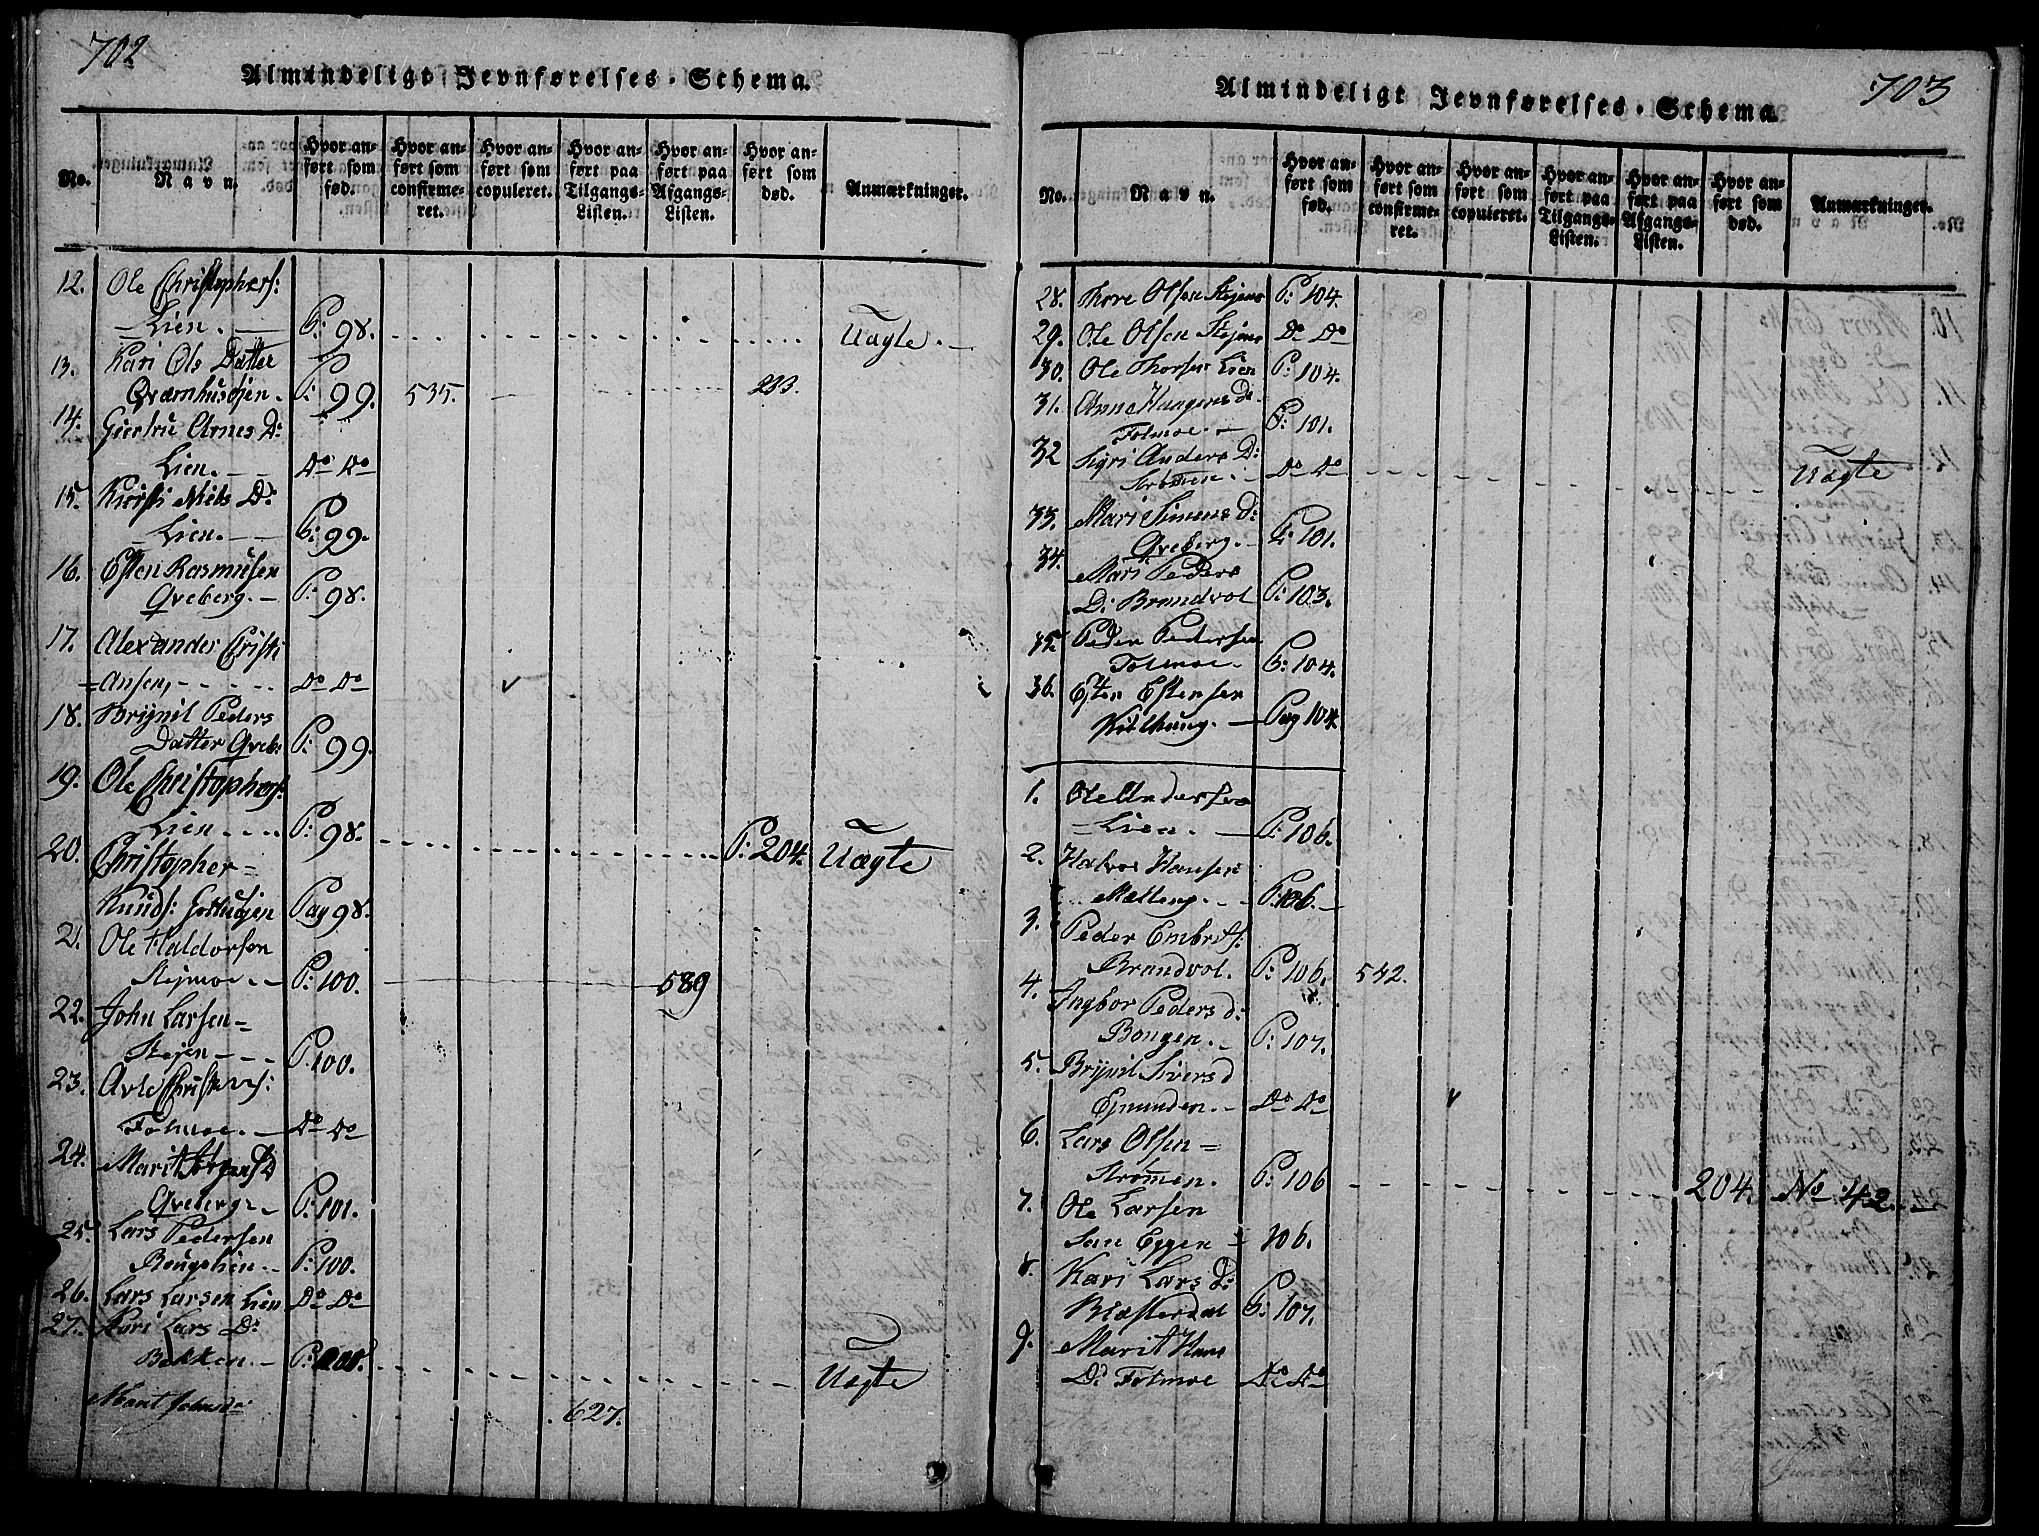 702
Almindeligt Jevnførelses-Schema.
No.
Navn.
Hvor anført som fød.
Hvor anført som confirmeret.
Hvor anført som copuleret.
Hvor anført paa Tilgangs-Listen.
Hvor anført paa Afgangs-Listen.
Hvor anført som død.
Anmærkninger.
12. Ole Christophers:
Lien. P: 98. Uægte.
13. Kari Ols Datter
Qværnhusøjen. P: 99. 535. 233.
14. Giertru Arnes D:
Lien. Do Do
15. Kiersti Niels D:
Lien. P: 99.
16. Esten Rasmusen
Qveberg. P: 98.
17. Alexander Christi
=Ansen, Do Do
18. Brynil Peders
Datter Qveb: P: 99.
19. Ole Christophers:
Lien P: 98. P: 204. Uægte
20. Christopher=
Knuds: Pag 98.
21. Ole Haldorsen
Stejmoe P: 100. 589
22. John Larsen=
Stejen P: 100.
23.
Tolmoe. Do Do
24. Marit D
Qveberg P: 101.
25. Lars Pedersen
P: 100.
26. Lars Larsen Lien Do Do
27. Kari Lars D:
Bakken. Uægte
627.
703
Almindeligt Jevnførelses-Schema.
No.
Navn.
Hvor anført som fød.
Hvor anført som confirmeret.
Hvor anført som copuleret.
Hvor anført paa Tilgangs-Listen.
Hvor anført paa Afgangs-Listen.
Hvor anført som død.
Anmærkninger.
28. Thore Olsen Stejens P: 104.
29. Ole Olsen Stejens Do Do
30. Ole Thorsen Lien P: 104.
31. Anne Haagens D:
Tolmoe. P: 101.
32 Sigri Anders D:
Strømen. Do Do Uægte
33. Mari Simens d:
Qveberg. P: 101.
34. Mari Peders
D: Brandvol P: 103.
35. Peder Pedersen
Tolmoe. P: 104.
36. Esten Estensen
Pag 104.
1. Ole Andersen
Lien. P: 106.
2. Halvor Hansen
P: 106.
3. Peder Embrets:
Brandvol. P: 106. 542.
4. Ingbor Peders d:
Bongen. P: 107.
5. Brynil Sivers d
Egnunden. Do Do
6. Lars Olsen=
Strømen. P: 106 204. No 42.
7. Ole Larsen
Eggen = 106.
8. Kari Lars D:
P: 107.
9. Marit Hans
D: Tolmoe Do Do